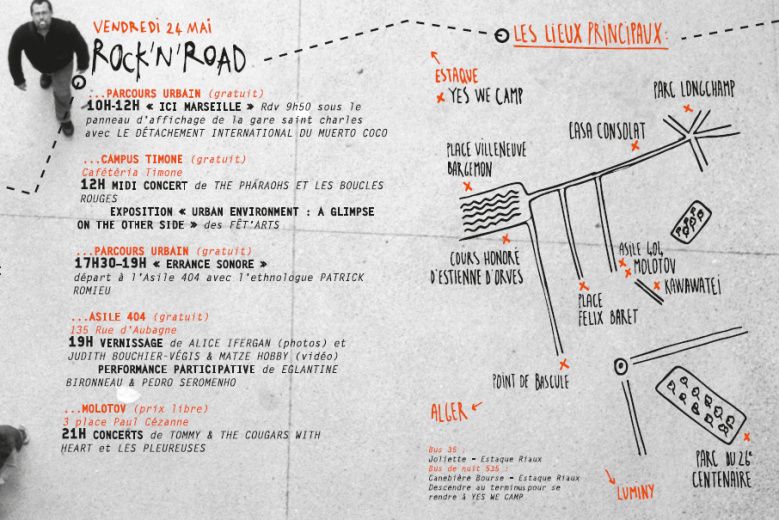 VENDREDI 24 MAI
ROCK'N'ROAD
...PARCOURS URBAIN (gratuit)
10H-12H « ICI MARSEILLE » Rdv 9h50 sous le
panneau d'affichage de la gare saint charles
avec LE DÉTACHEMENT INTERNATIONAL DU MUERTO COCO
...CAMPUS TIMONE (gratuit)
Cafétéria Timone
12H MIDI CONCERT de THE PHARAOHS ET LES BOUCLES
ROUGES
EXPOSITION « URBAN ENVIRONMENT : A GLIMPSE
ON THE OTHER SIDE » des FÊT'ARTS
...PARCOURS URBAIN (gratuit)
17H30-19H « ERRANCE SONORE »
départ à l'Asile 404 avec l'ethnologue PATRICK
ROMIEU
...ASILE 404 (gratuit)
135 Rue d'Aubagne
19H VERNISSAGE de ALICE IFERGAN (photos) et
JUDITH BOUCHIER-VÉGIS & MATZE HOBBY (vidéo)
PERFORMANCE PARTICIPATIVE de EGLANTINE
BIRONNEAU & PEDRO SEROMENHO
...MOLOTOV (prix libre)
3 place Paul Cézanne
21H CONCERTS de TOMMY & THE COUGARS WITH
HEART et LES PLEUREUSES
LES LIEUX PRINCIPAUX:
ESTAQUE
YES WE CAMP
PARC LONGCHAMP
CASA CONSOLAT
PLACE VILLENEUVE
BARGEMON
COURS HONORE
D'ESTIENNE D'ORVES
ASILE 404
MOLOTOV
KAWAWATEÏ
PLACE
FELIX BARET
POINT DE BASCULE
ALGER
PARC DU 26e
CENTENAIRE
LUMINY
Bus 35 :
Joliette - Estaque Riaux
Bus de nuit 535 :
Canebière Bourse - Estaque Riaux
Descendre au terminus pour se
rendre à YES WE CAMP